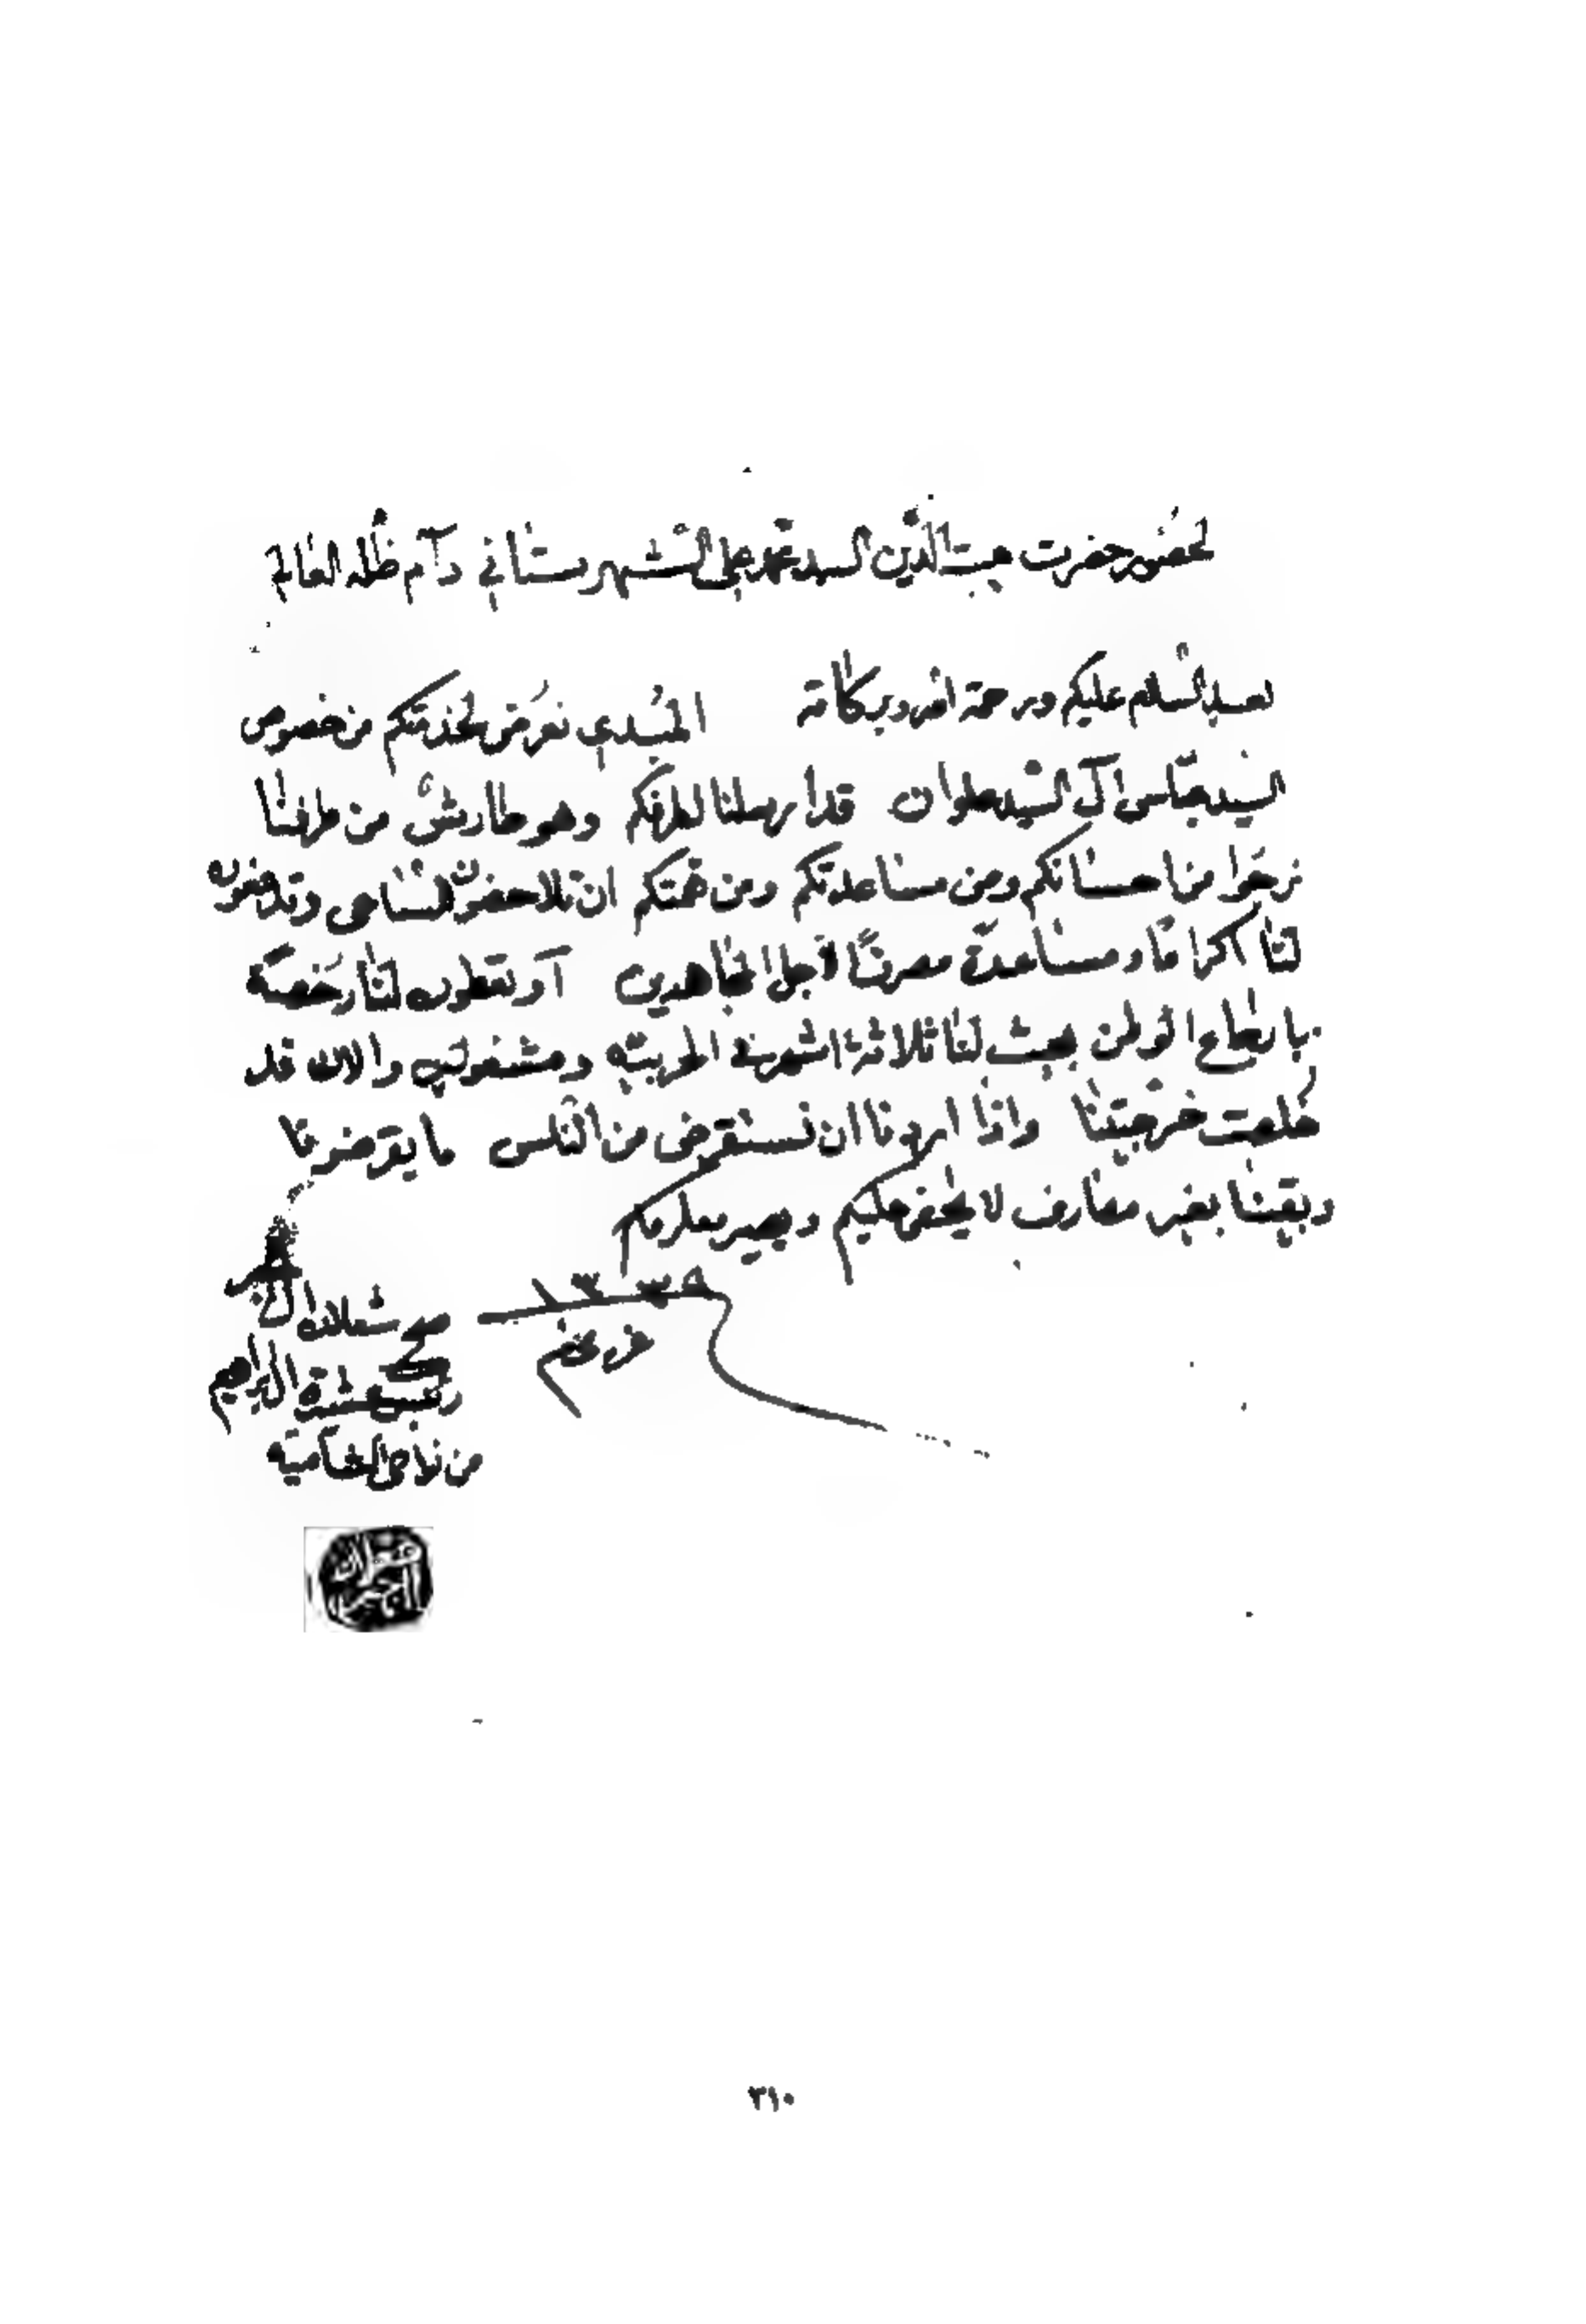 لحضور حضرت هبت الدين السيد محمد علي الشهرستاني دام ظله العالي
بعد السلام عليكم ورحمة الله وبركاته المبدي نعرض لخدمتكم من خصوص
السيد عباس آل السيد علوان قد ارسلنا لطرفكم وهو طارش من طرفنا
نرجوا من احسانكم ومن مساعدتكم ومن همتكم ان تلاحضون السامي وتلاحضون
لنا اكراما ومساعدة مصرفا لاجل المجاهدين او تعطون لنا رخصة
بارجاع الوطن بحيث لنا ثلاثة اشهر في الحربية ومشغولين والان قد
خلصت خرجيتنا واذا اردونا ان نستقرض من الناس ما يقرضونا
وبقينا بغير مصارف لا يخفى عليكم ويصير معلومكم
١٣٣٨
محرم
شعلان
رئيس عشيرة البراهيم
من نواحي الشامية
٣١٠